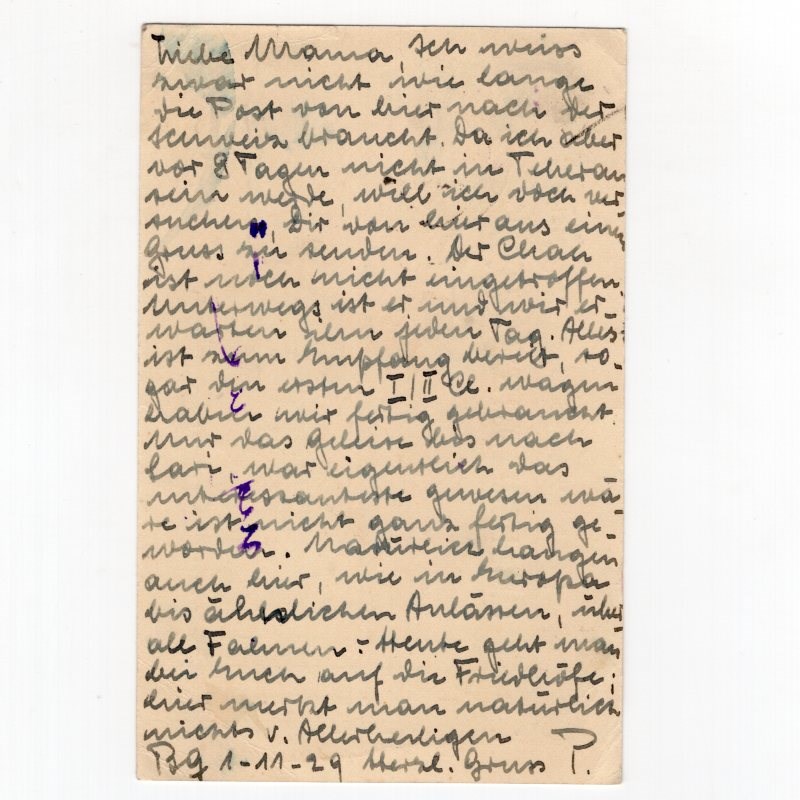 Liebe Mama, Ich weiss
zwar nicht wie lange
die Post von hier nach der
Schweiz braucht. Da ich aber
vor 8 Tagen nicht in Teheran
sein werde, will ich doch ver
suchen, Dir von hier aus einen
Gruss zu senden. Der Chah
ist noch nicht eingetroffen.
Unterwegs ist er und wir er-
warten ihn jeden Tag. Alles
ist zum Empfang bereit, so-
gar den ersten I/II Cl. wagen
haben wir fertig gebraucht.
Nur das Geleise bis nach
Sari, war eigentlich das
interessanteste gewesen wä-
re ist nicht ganz fertig ge-
worden. Natürlich hangen
auch hier, wie in Europa
bis ähnlichen Anlässen, über
all Fahnen. Heute geht man
bei Euch auf die Friedhöfe;
hier merkt man natürlich
nichts v. Allerheiligen
BG 1-11-29 Herzl. Gruss P.